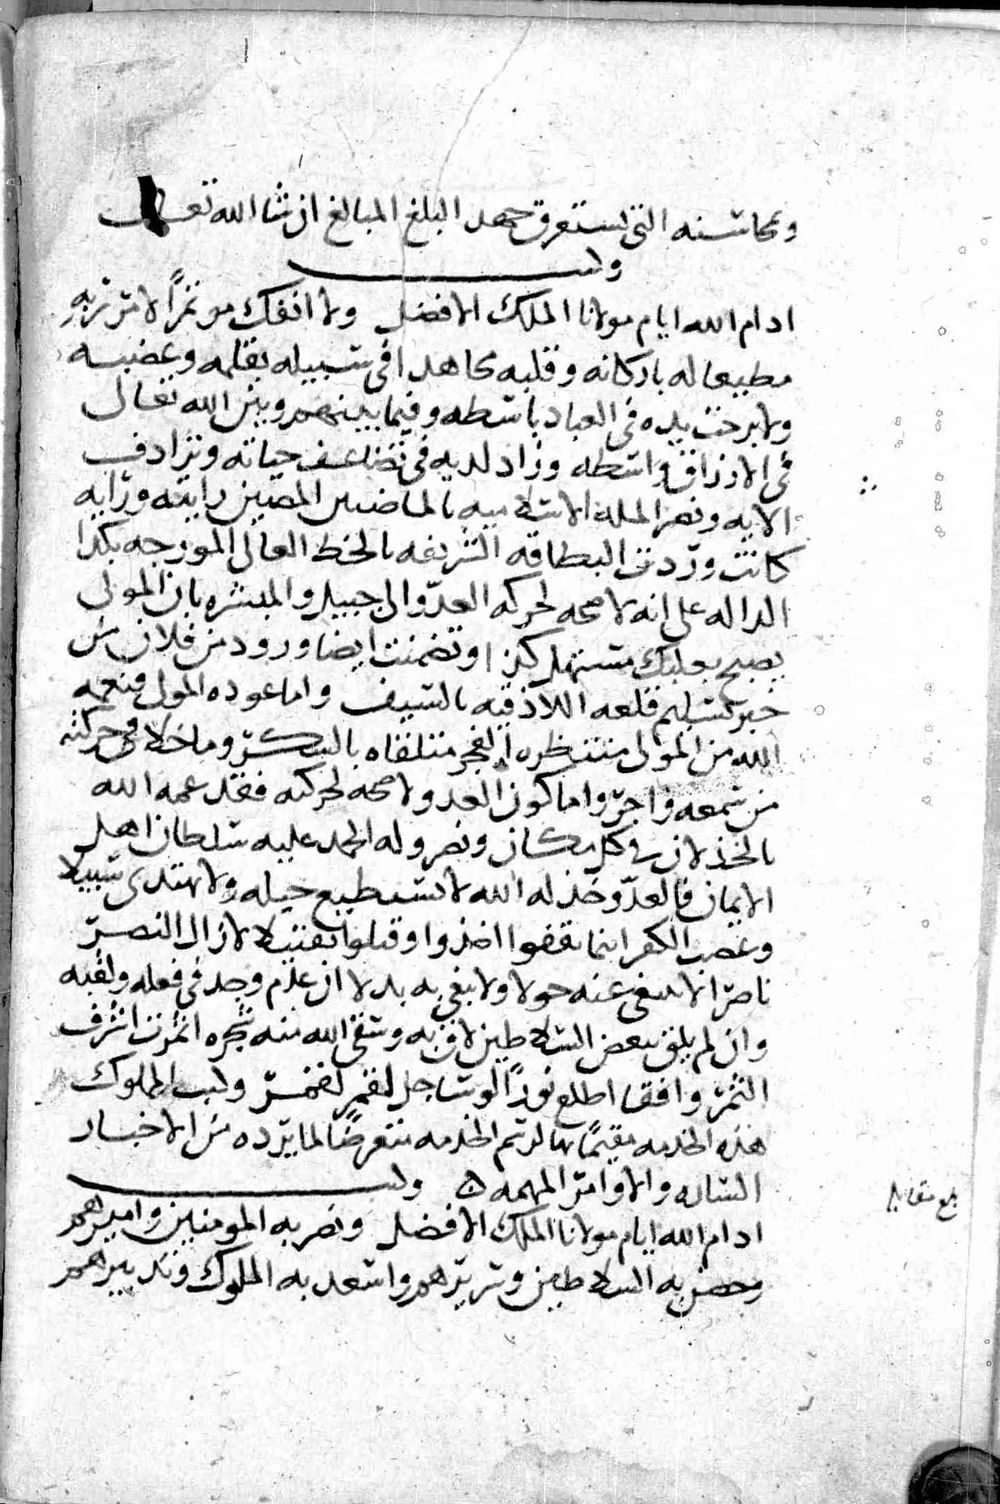 ومحاسنه التي يستغرق جهد البليغ المبالغ ان شا الله تعالى
وكتب
ادام الله ايام مولانا الملك الافضل ولا انفك موتمرا لامر ربه
مطيعا له باركانه وقلبه مجاهدا في سبيله بقلمه وعضبه
ولا برحت يده في العباد باسطه وفيما بينهم وبين الله تعالى
في الارزاق واسطه وزاد لديه في تضاعف حياته وترادف
الايه ونصر المله الاسلاميه بالماضيين المضيين رايته ورايه
كانت وردت البطاقه الشريفه بالخط العالي المورخه بكذا
الداله على انه لا صحه لحركه العدو الى جبيل والمبشره بان المولى
يصبح بعلبك مستهل كذا وتضمنت ايضا ورود من فلان من
خبر تسليم قلعه اللاذقيه بالسيف واما عوده المولى فنعمه
الله من المولى منتظره الفجر متلقاه بالشكر وما خلا في حركته
من سمعه واجر واما كون العدو لا صحه لحركته فقد عمه الله
بالخذلان في كل مكان ونصر وله الحمد عليه سلطان اهل
الايمان فالعدو خذله الله لا يستطيع حيله ولا يهتدي سبيلا
وعصب الكفر اينما ثقفوا اخذوا وقتلوا تقتيلا لا زال النصر
ناصرا لا يبغي عنه حولا ولا يبغي به بدلا ان علم وجد في فعله ولقبه
وان لم يلق ببعض السلاطين لاق به وسقى الله منه شجره اثمرت اشرف
الثمر وافقا اطلع نورا لو ساجل القمر لقمر وكتب المملوك
هذه الخدمه مقيما بها لرسم الخدمه متعرضا لما يرده من الاخبار
الساره والاوامر المهمه وكتب
ادام الله ايام مولانا الملك الافضل ونصر به المومنين واميرهم
وحصن به السلاطين وسريرهم واسعد به الملوك وتدبيرهم
بلغ مقابله